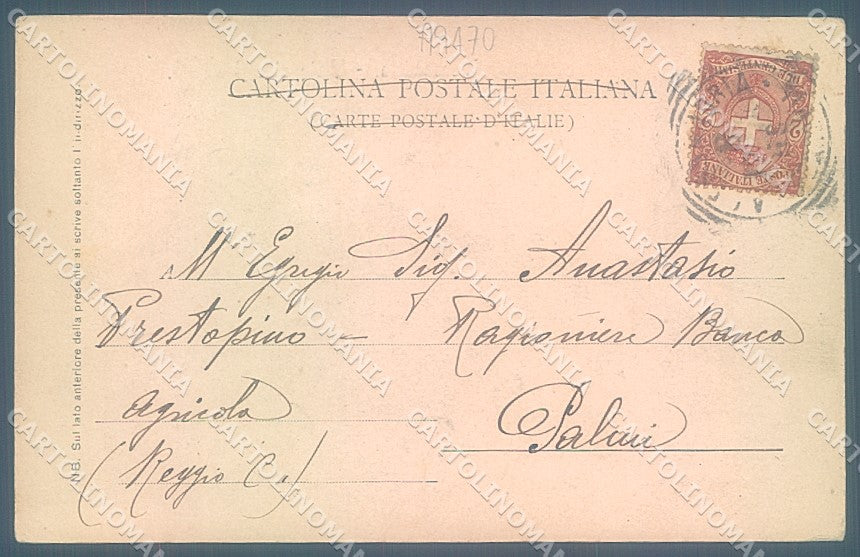 A9470
CARTOLINA POSTALE ITALIANA
(CARTE POSTALE D'ITALIE)
DUE CENTESIMI
2 2
POSTE ITALIANE
NB. Sul lato anteriore della presente si scrive soltanto l'indirizzo
All' Egregio Sig. Anastasio
Prestopino - Ragioniere Banca
Agricola
Palmi
(Reggio C.)
CARTOLINOMANIA